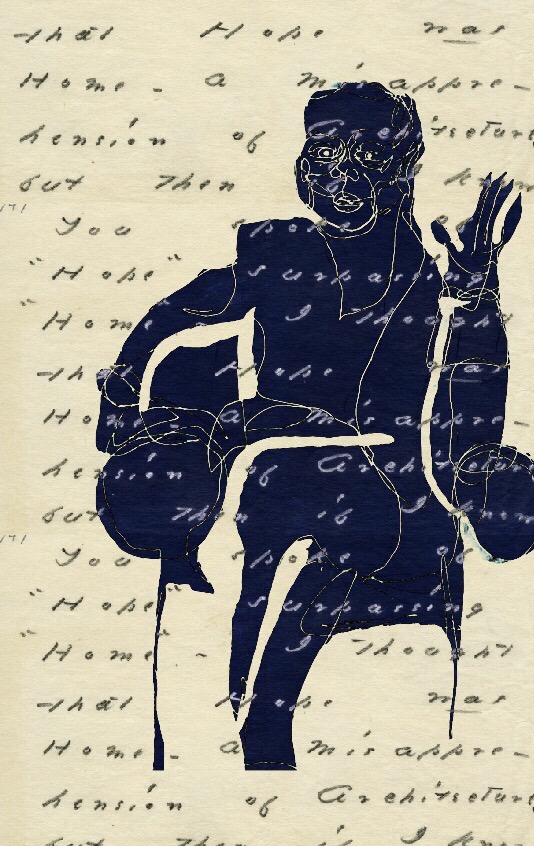 that Hope was
Home - A misappre-
hension of Architecture
but then if I knew
You spoke of
"Hope" surpassing
"Home" - I thought
that Hope was
Home - A misappre-
hension of Architecture
but then if I knew
You spoke of
"Hope" surpassing
"Home" - I thought
that Hope was
Home - A misappre-
hension of Architecture
but then if I knew